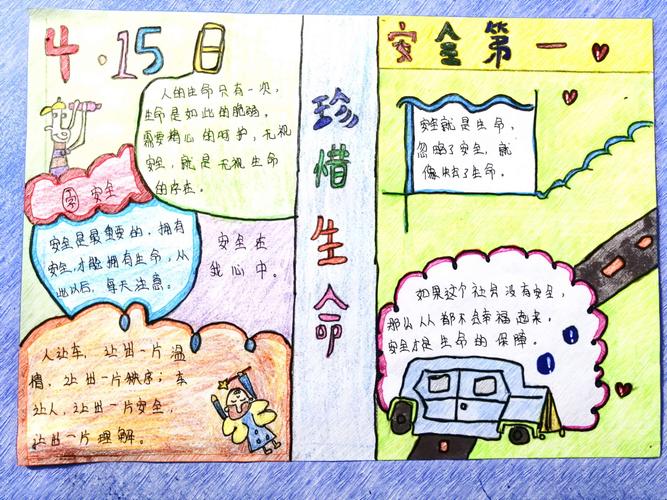 4·15日
人的生命只有一次，
生命是如此的脆弱。
需要精心的呵护，无视
安全，就是无视生命
的存在。
安全
安全是最重要的，拥有
安全，才能拥有生命，从
此以后，每天注意。
安全在
我心中。
人让车，让出一片温
情，让出一片秩序；车
让人，让出一片安全，
让出一片理解。
珍惜生命
安全第一
安全就是生命，
忽略了安全，就
像了生命。
如果这个社会没有安全，
那么人人都不会幸福起来，
安全才是生命的保障。